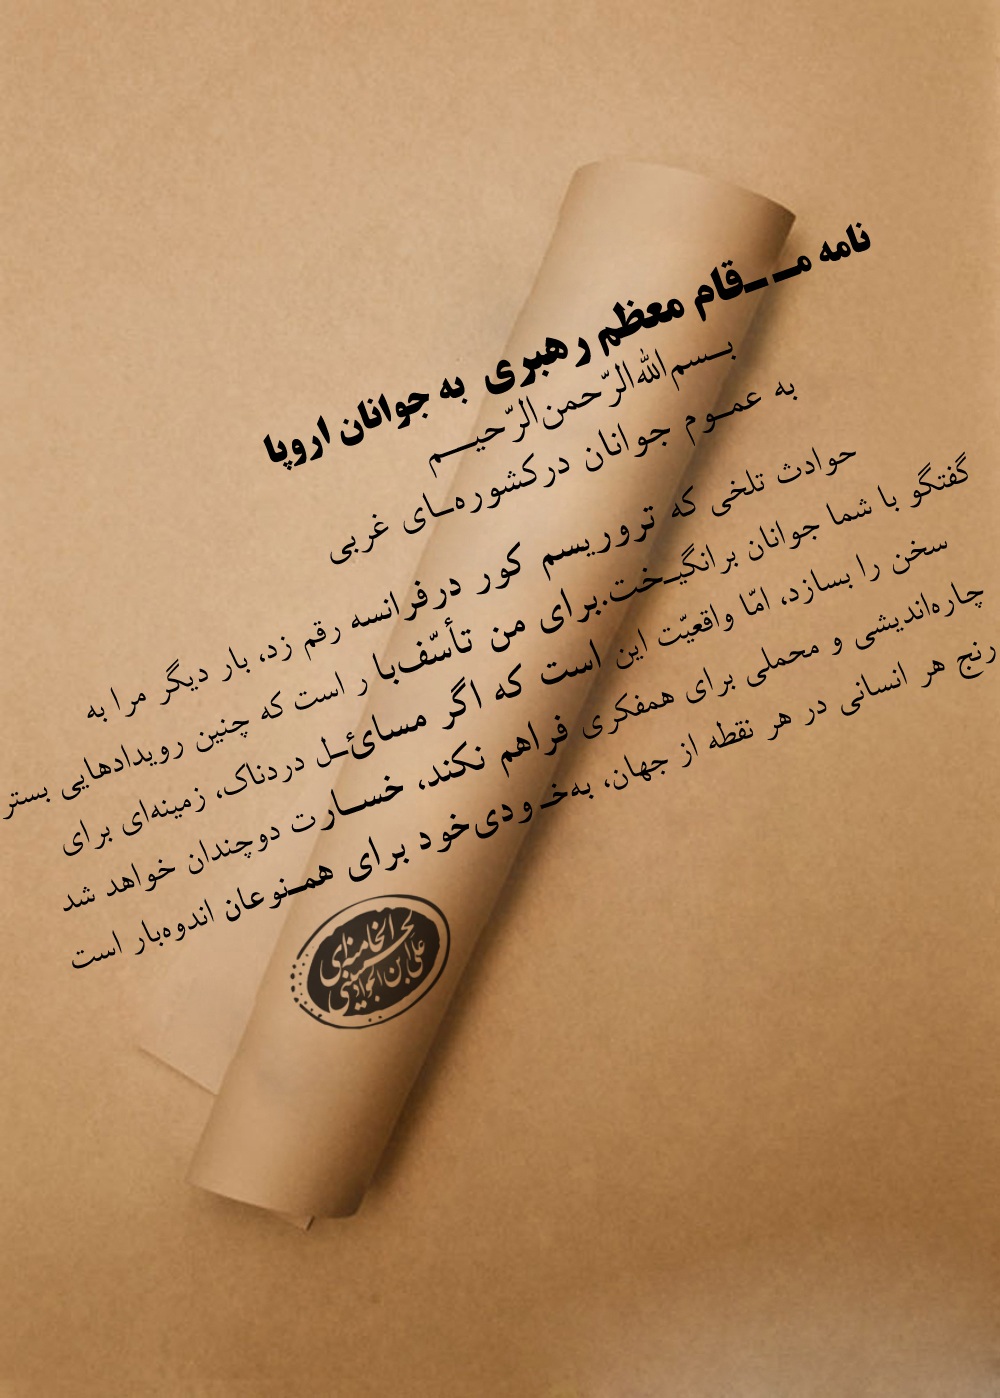 نامه مقام معظم رهبری به جوانان اروپا
بسم الله الرّحمن الرّحیم
به عموم جوانان در کشورهای غربی
حوادث تلخی که تروریسم کور در فرانسه رقم زد، بار دیگر مرا به
گفتگو با شما جوانان برانگیخت. برای من تأسّف‌بار است که چنین رویدادهایی بستر
سخن را بسازد، امّا واقعیّت این است که اگر مسائل دردناک، زمینه‌ای برای
چاره‌اندیشی و محملی برای همفکری فراهم نکند، خسارت دوچندان خواهد شد
رنج هر انسانی در هر نقطه از جهان، به‌خودی‌خود برای همنوعان اندوه‌بار است
علی ابن الجواد
الحسینی
الخامنه‌ای